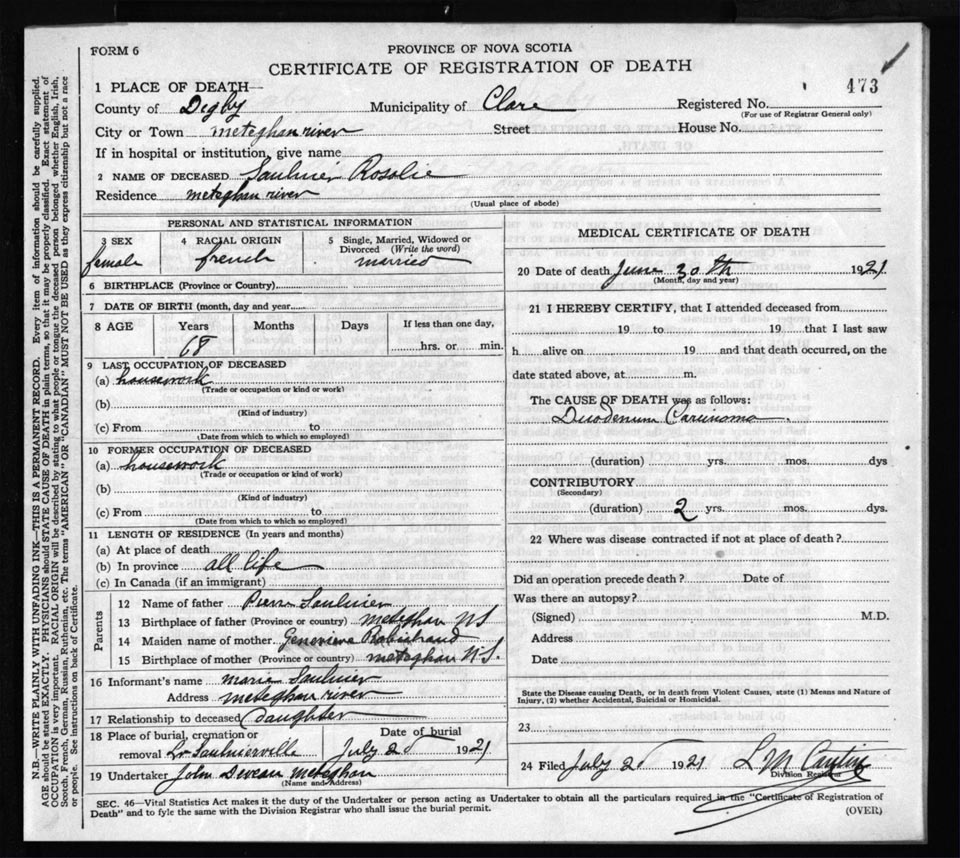 FORM 6
PROVINCE OF NOVA SCOTIA
CERTIFICATE OF REGISTRATION OF DEATH
473
1 PLACE OF DEATH—
County of Digby Municipality of Clare Registered No.
(For use of Registrar General only)
City or Town meteghan river Street House No.
If in hospital or institution, give name
2 NAME OF DECEASED Saulnier Rosalie
Residence meteghan river
(Usual place of abode)
PERSONAL AND STATISTICAL INFORMATION
3 SEX 4 RACIAL ORIGIN 5 Single, Married, Widowed or Divorced (Write the word)
female french married
6 BIRTHPLACE (Province or Country)
7 DATE OF BIRTH (month, day and year)
8 AGE Years Months Days If less than one day,
68 hrs. or min.
9 LAST OCCUPATION OF DECEASED
(a) housework
(Trade or occupation or kind or work)
(b)
(Kind of industry)
(c) From to
(Date from which to which so employed)
10 FORMER OCCUPATION OF DECEASED
(a) housework
(Trade or occupation or kind of work)
(b)
(Kind of industry)
(c) From to
(Date from which to which so employed)
11 LENGTH OF RESIDENCE (In years and months)
(a) At place of death
(b) In province all life
(c) In Canada (if an immigrant)
Parents
12 Name of father Pierre Saulnier
13 Birthplace of father (Province or country) meteghan NS
14 Maiden name of mother Genevieve Robichaud
15 Birthplace of mother (Province or country) meteghan N.S.
16 Informant's name marie Saulnier
Address meteghan river
17 Relationship to deceased daughter
18 Place of burial, cremation or removal Lr Saulnierville
Date of burial
July 2d 1921
19 Undertaker John Deveau meteghan
(Name and Address)
MEDICAL CERTIFICATE OF DEATH
20 Date of death June 30th 1921
(Month, day and year)
21 I HEREBY CERTIFY, that I attended deceased from
19 to 19 that I last saw
h alive on 19 and that death occurred, on the
date stated above, at m.
The CAUSE OF DEATH was as follows:
Duodenum Carcinoma
(duration) yrs. mos. dys
CONTRIBUTORY
(Secondary)
(duration) 2 yrs. mos. dys.
22 Where was disease contracted if not at place of death?
Did an operation precede death? Date of
Was there an autopsy?
(Signed) M.D.
Address
Date
State the Disease causing Death, or in death from Violent Causes, state (1) Means and Nature of
Injury, (2) whether Accidental, Suicidal or Homicidal.
23
24 Filed July 2d 1921 L M
Division Registrar
SEC. 46—Vital Statistics Act makes it the duty of the Undertaker or person acting as Undertaker to obtain all the particulars required in the "Certificate of Registration of
Death" and to fyle the same with the Division Registrar who shall issue the burial permit.
(OVER)
N.B.—WRITE PLAINLY WITH UNFADING INK—THIS IS A PERMANENT RECORD. Every item of information should be carefully supplied.
AGE should be stated EXACTLY. PHYSICIANS should STATE CAUSE OF DEATH in plain terms, so that it may be properly classified. Exact statement of
OCCUPATION is very important. RACIAL ORIGIN will be described by stating to what people or tongue the deceased person belonged whether English, Irish,
Scotch, French, German, Russian, Ruthenian, etc. The terms "AMERICAN" OR "CANADIAN" MUST NOT BE USED as they express citizenship but not a race
or people. See instructions on back of Certificate.